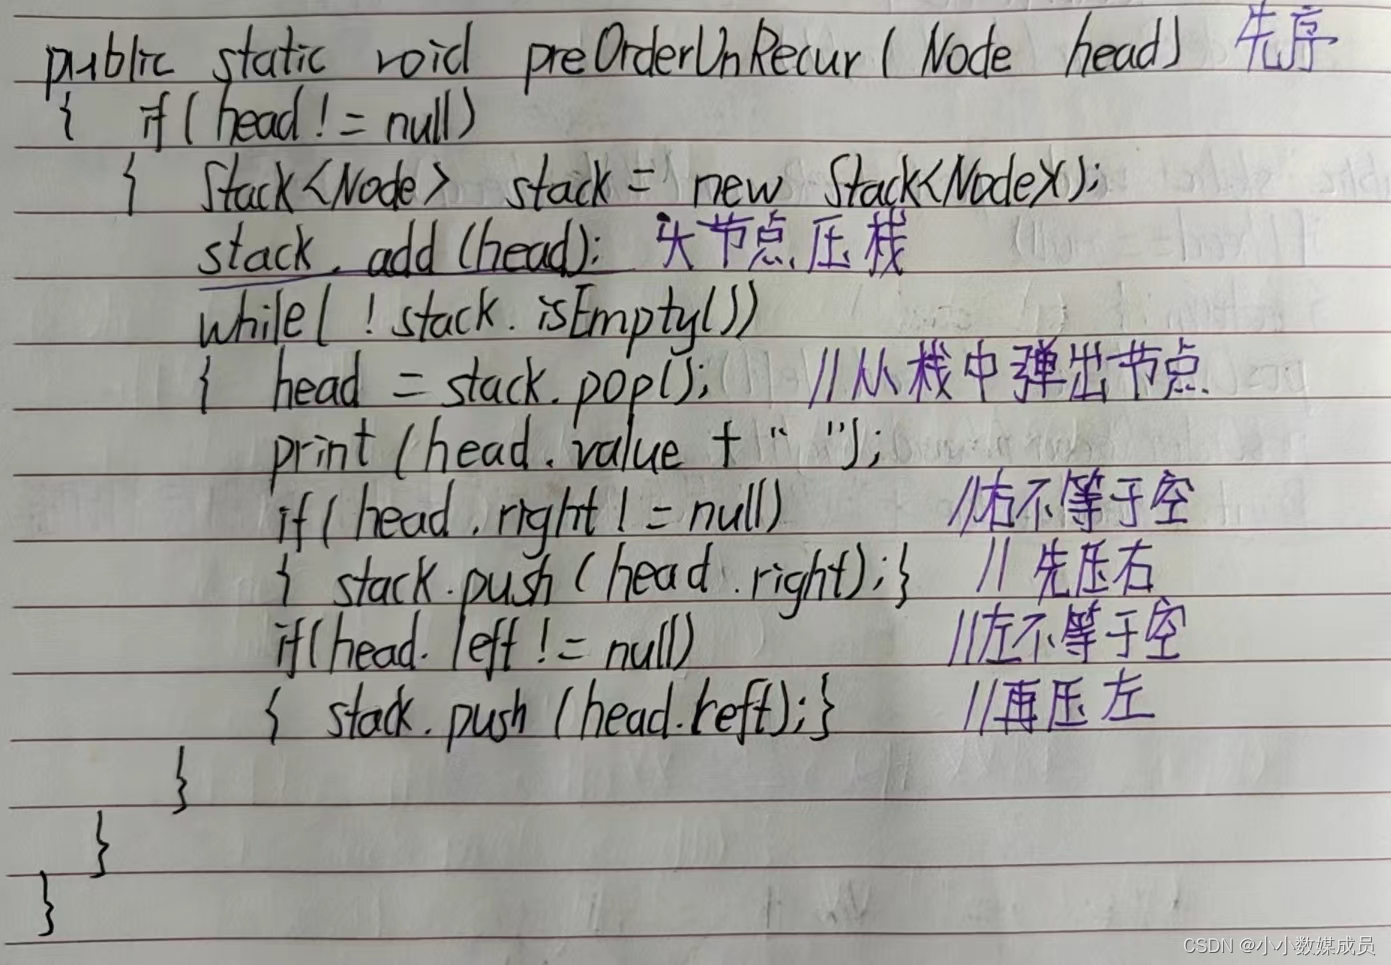 public static void preOrderUnRecur( Node head) 先序
{ if( head != null)
{ Stack<Node> stack = new Stack<Node>();
stack. add (head); 头节点压栈
while( ! stack. isEmpty())
{ head = stack. pop(); //从栈中弹出节点
print (head. value + " ");
if( head. right != null) //右不等于空
{ stack. push (head. right);} // 先压右
if(head. left != null) //左不等于空
{ stack. push (head. left);} //再压左
}
}
}
CSDN @小小数媒成员